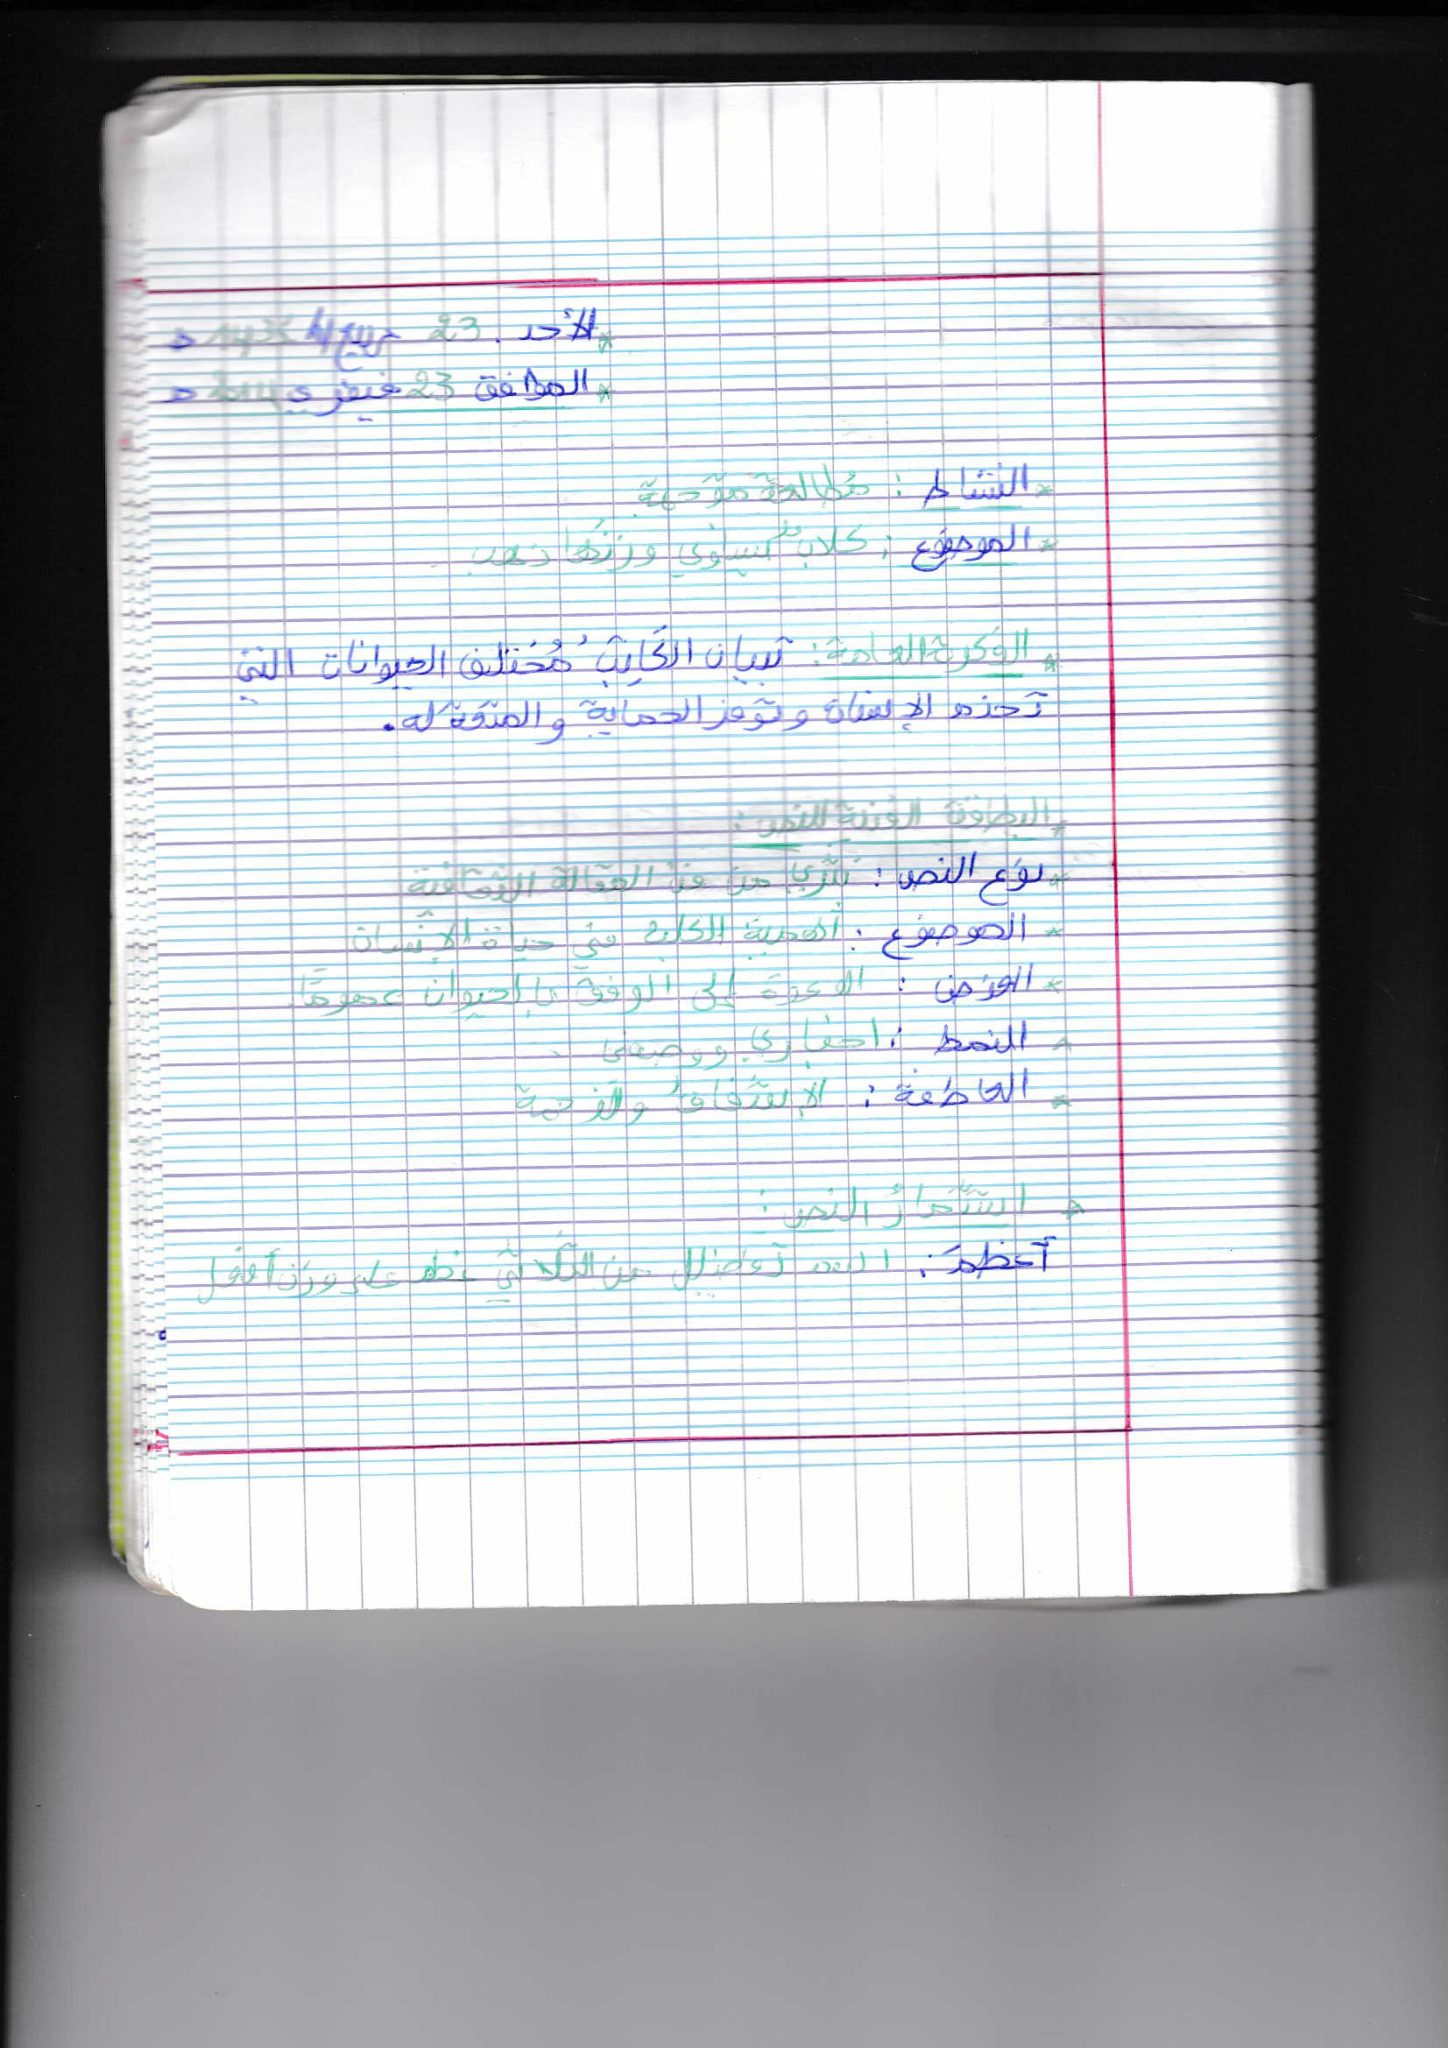 * الأحد. 23 ربيع 14 هـ
* الموافق 23 فيفري 2014 م
* النشاط : مطالعة موجهة
* الموضوع : كلابٌ تساوي وزنها ذهب
* الفكرة العامة : تبيان الكاتب مُختلف الحيوانات التي
تخدم الإنسان و توفر الحماية و المتعة له.
* البطاقة الفنية للنص :
* نوع النص : نثري من فن المقالة
* الموضوع : أهمية الكلب في حياة الإنسان
* الغرض : الدعوة إلى الرفق بالحيوان عمومًا
* النمط : اخباري و وصفي
* العاطفة : الإستعطاف والرحمة
* استثمار النص :
أعظم : اسم تفضيل من الثلاثي عظم على وزن أفعل